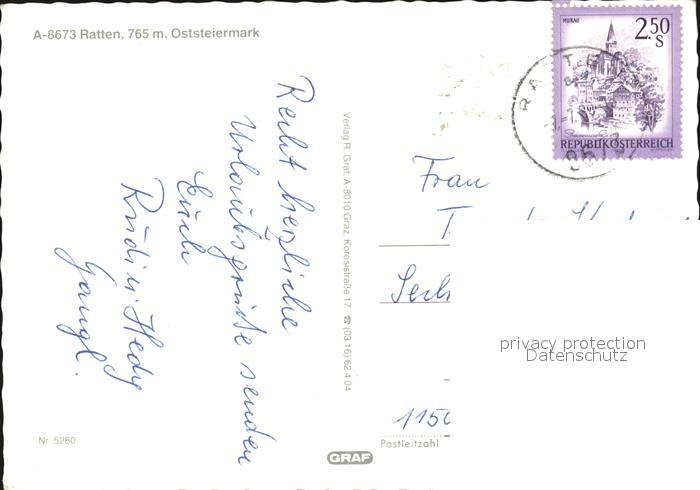 A-8673 Ratten, 765 m, Oststeiermark
Recht herzliche
Urlaubsgrüße senden
Euch
Rudi u. Hedy
Gangl.
Nr. 5280
Verlag R. Graf, A-8010 Graz, Korösistraße 17 ☎ (03 16) 62 4 04
GRAF
MURAU
2.50
S
REPUBLIK ÖSTERREICH
Frau
1150
Postleitzahl
privacy protection
Datenschutz